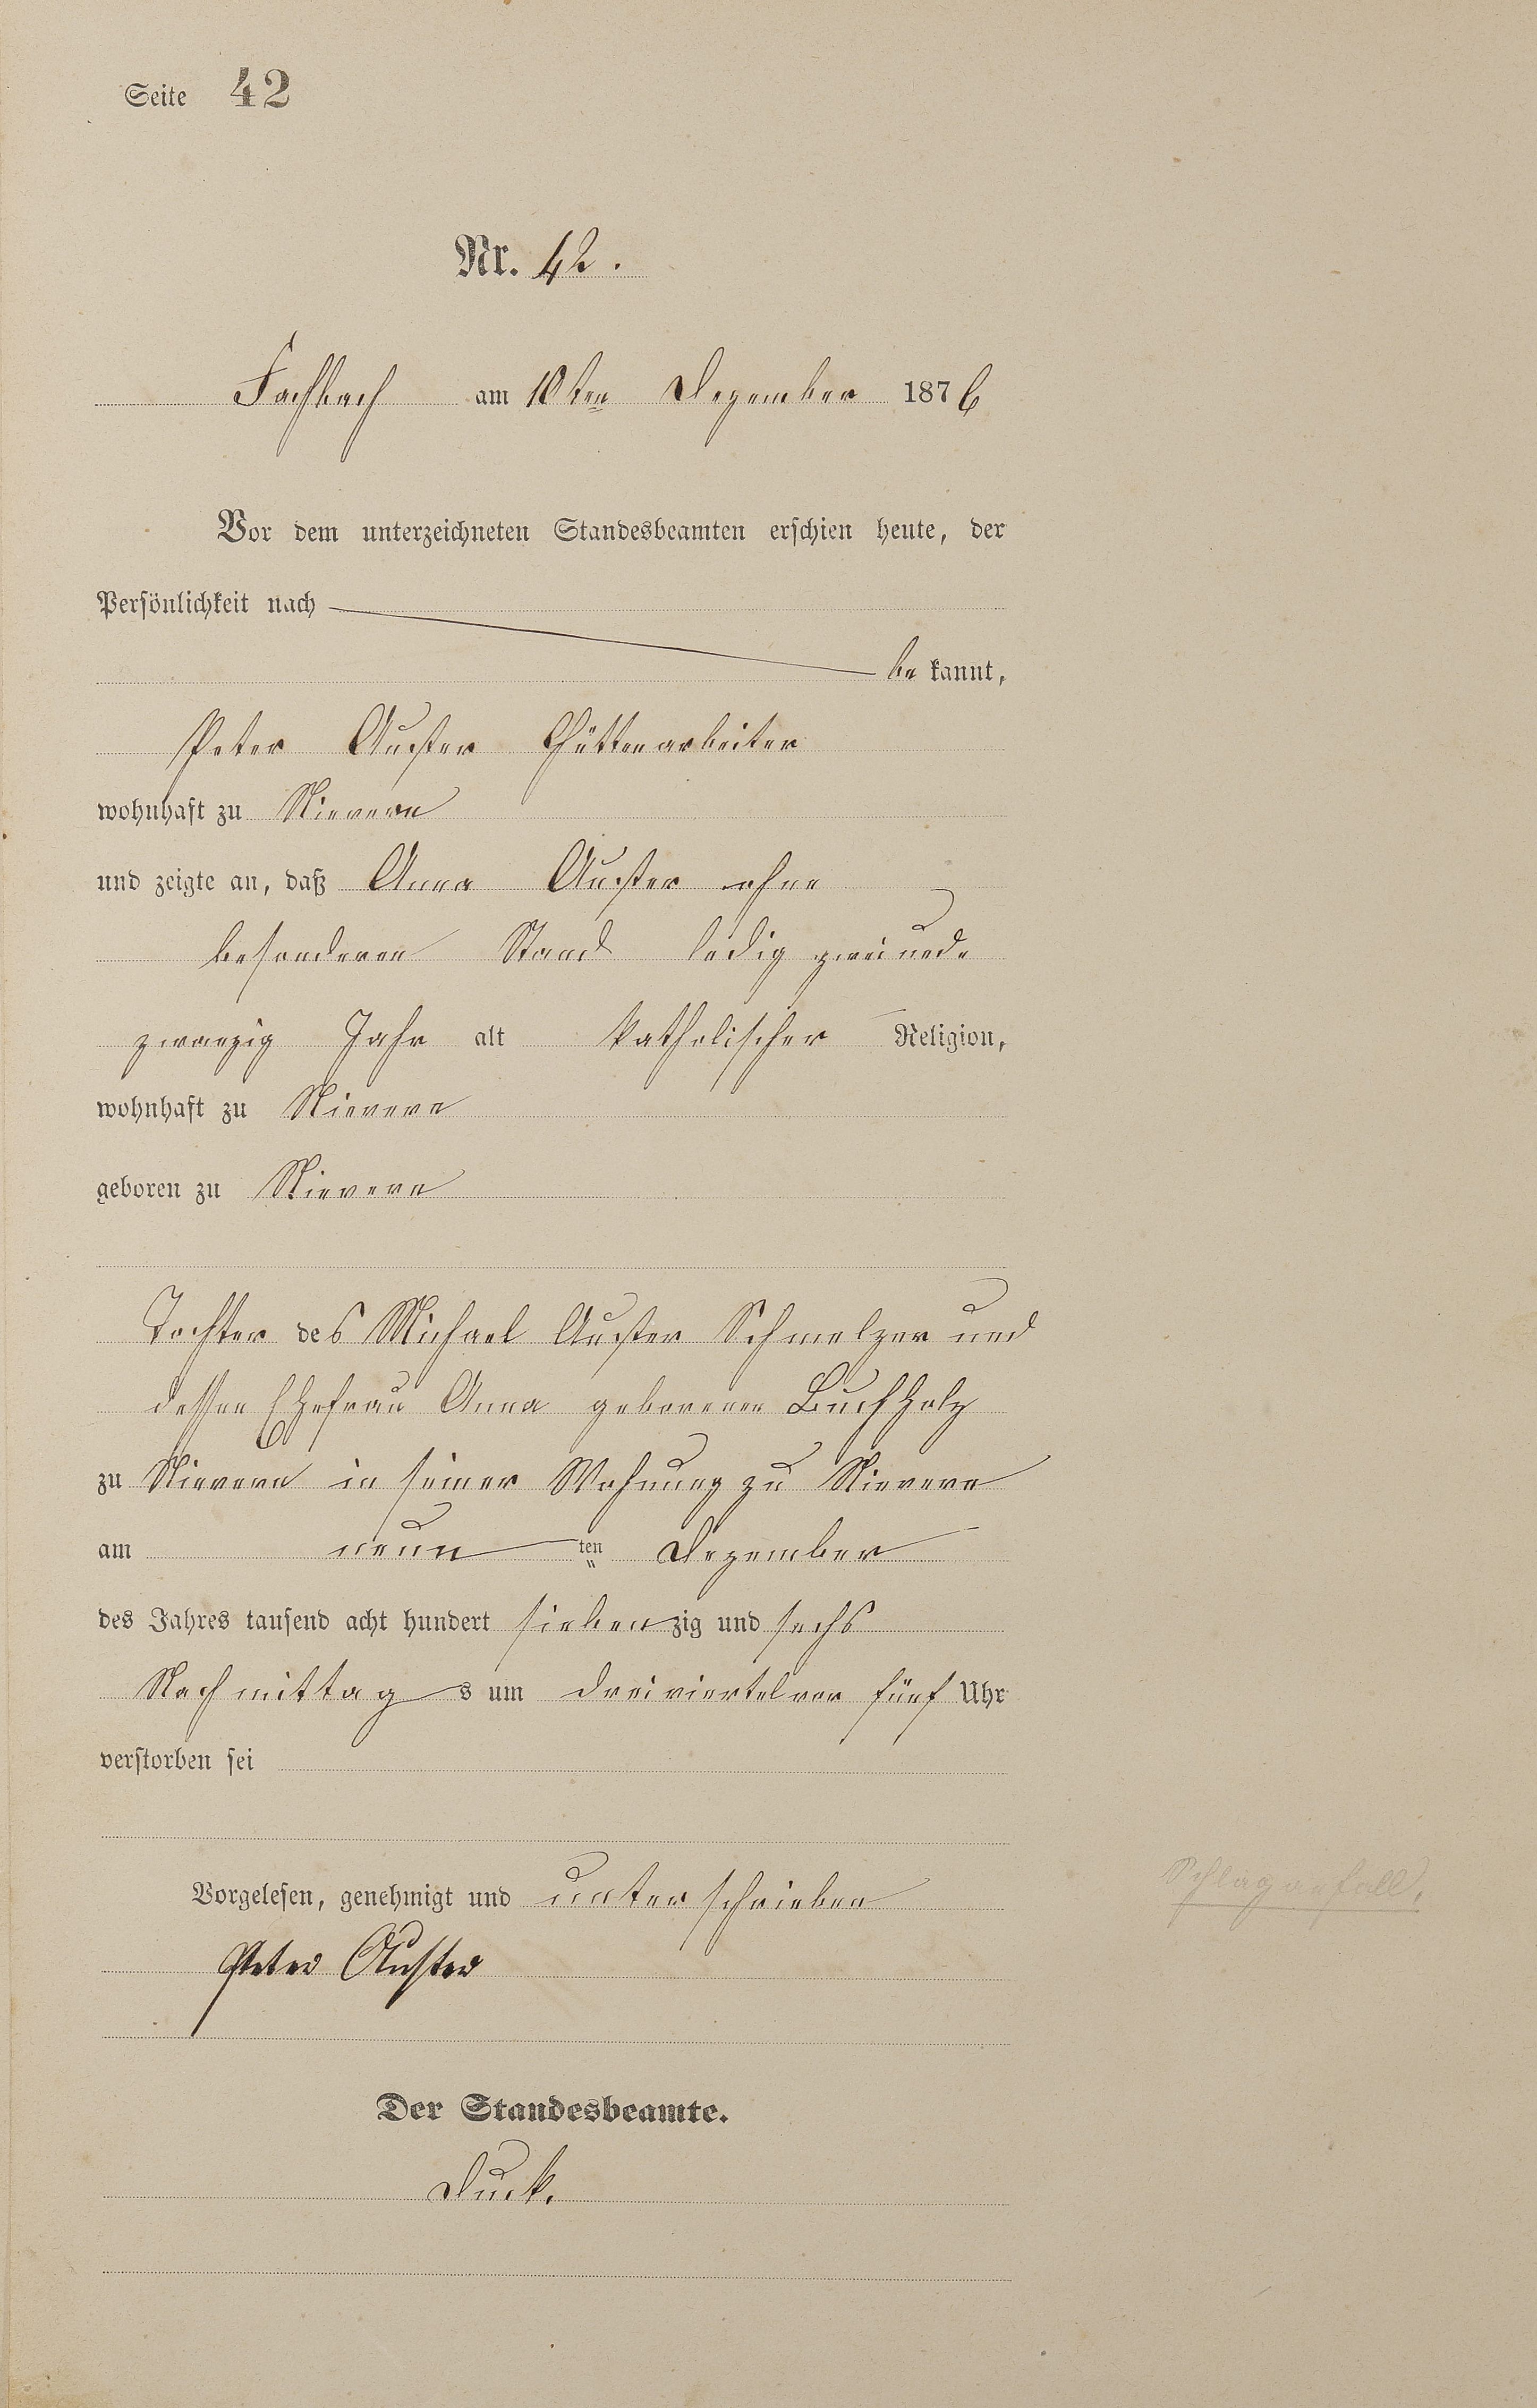 Seite 42
Nr. 42.
Fachbach am 10ten Dezember 1876
Vor dem unterzeichneten Standesbeamten erschien heute, der
Persönlichkeit nach
be kannt,
Peter Auster Hüttenarbeiter
wohnhaft zu Nievern
und zeigte an, daß Anna Auster ohne
besonderen Stand ledig zweiund-
zwanzig Jahr alt katholischer Religion,
wohnhaft zu Nievern
geboren zu Nievern
Tochter des Michael Auster Schmelzer und
dessen Ehefrau Anna geborenen Buchholz
zu Nievern in seiner Wohnung zu Nievern
am neun ten Dezember
des Jahres tausend acht hundert siebenzig und sechs
Nachmittags um dreiviertel vor fünf Uhr
verstorben sei
Schlaganfall.
Vorgelesen, genehmigt und unterschrieben
Peter Auster
Der Standesbeamte.
Duck.